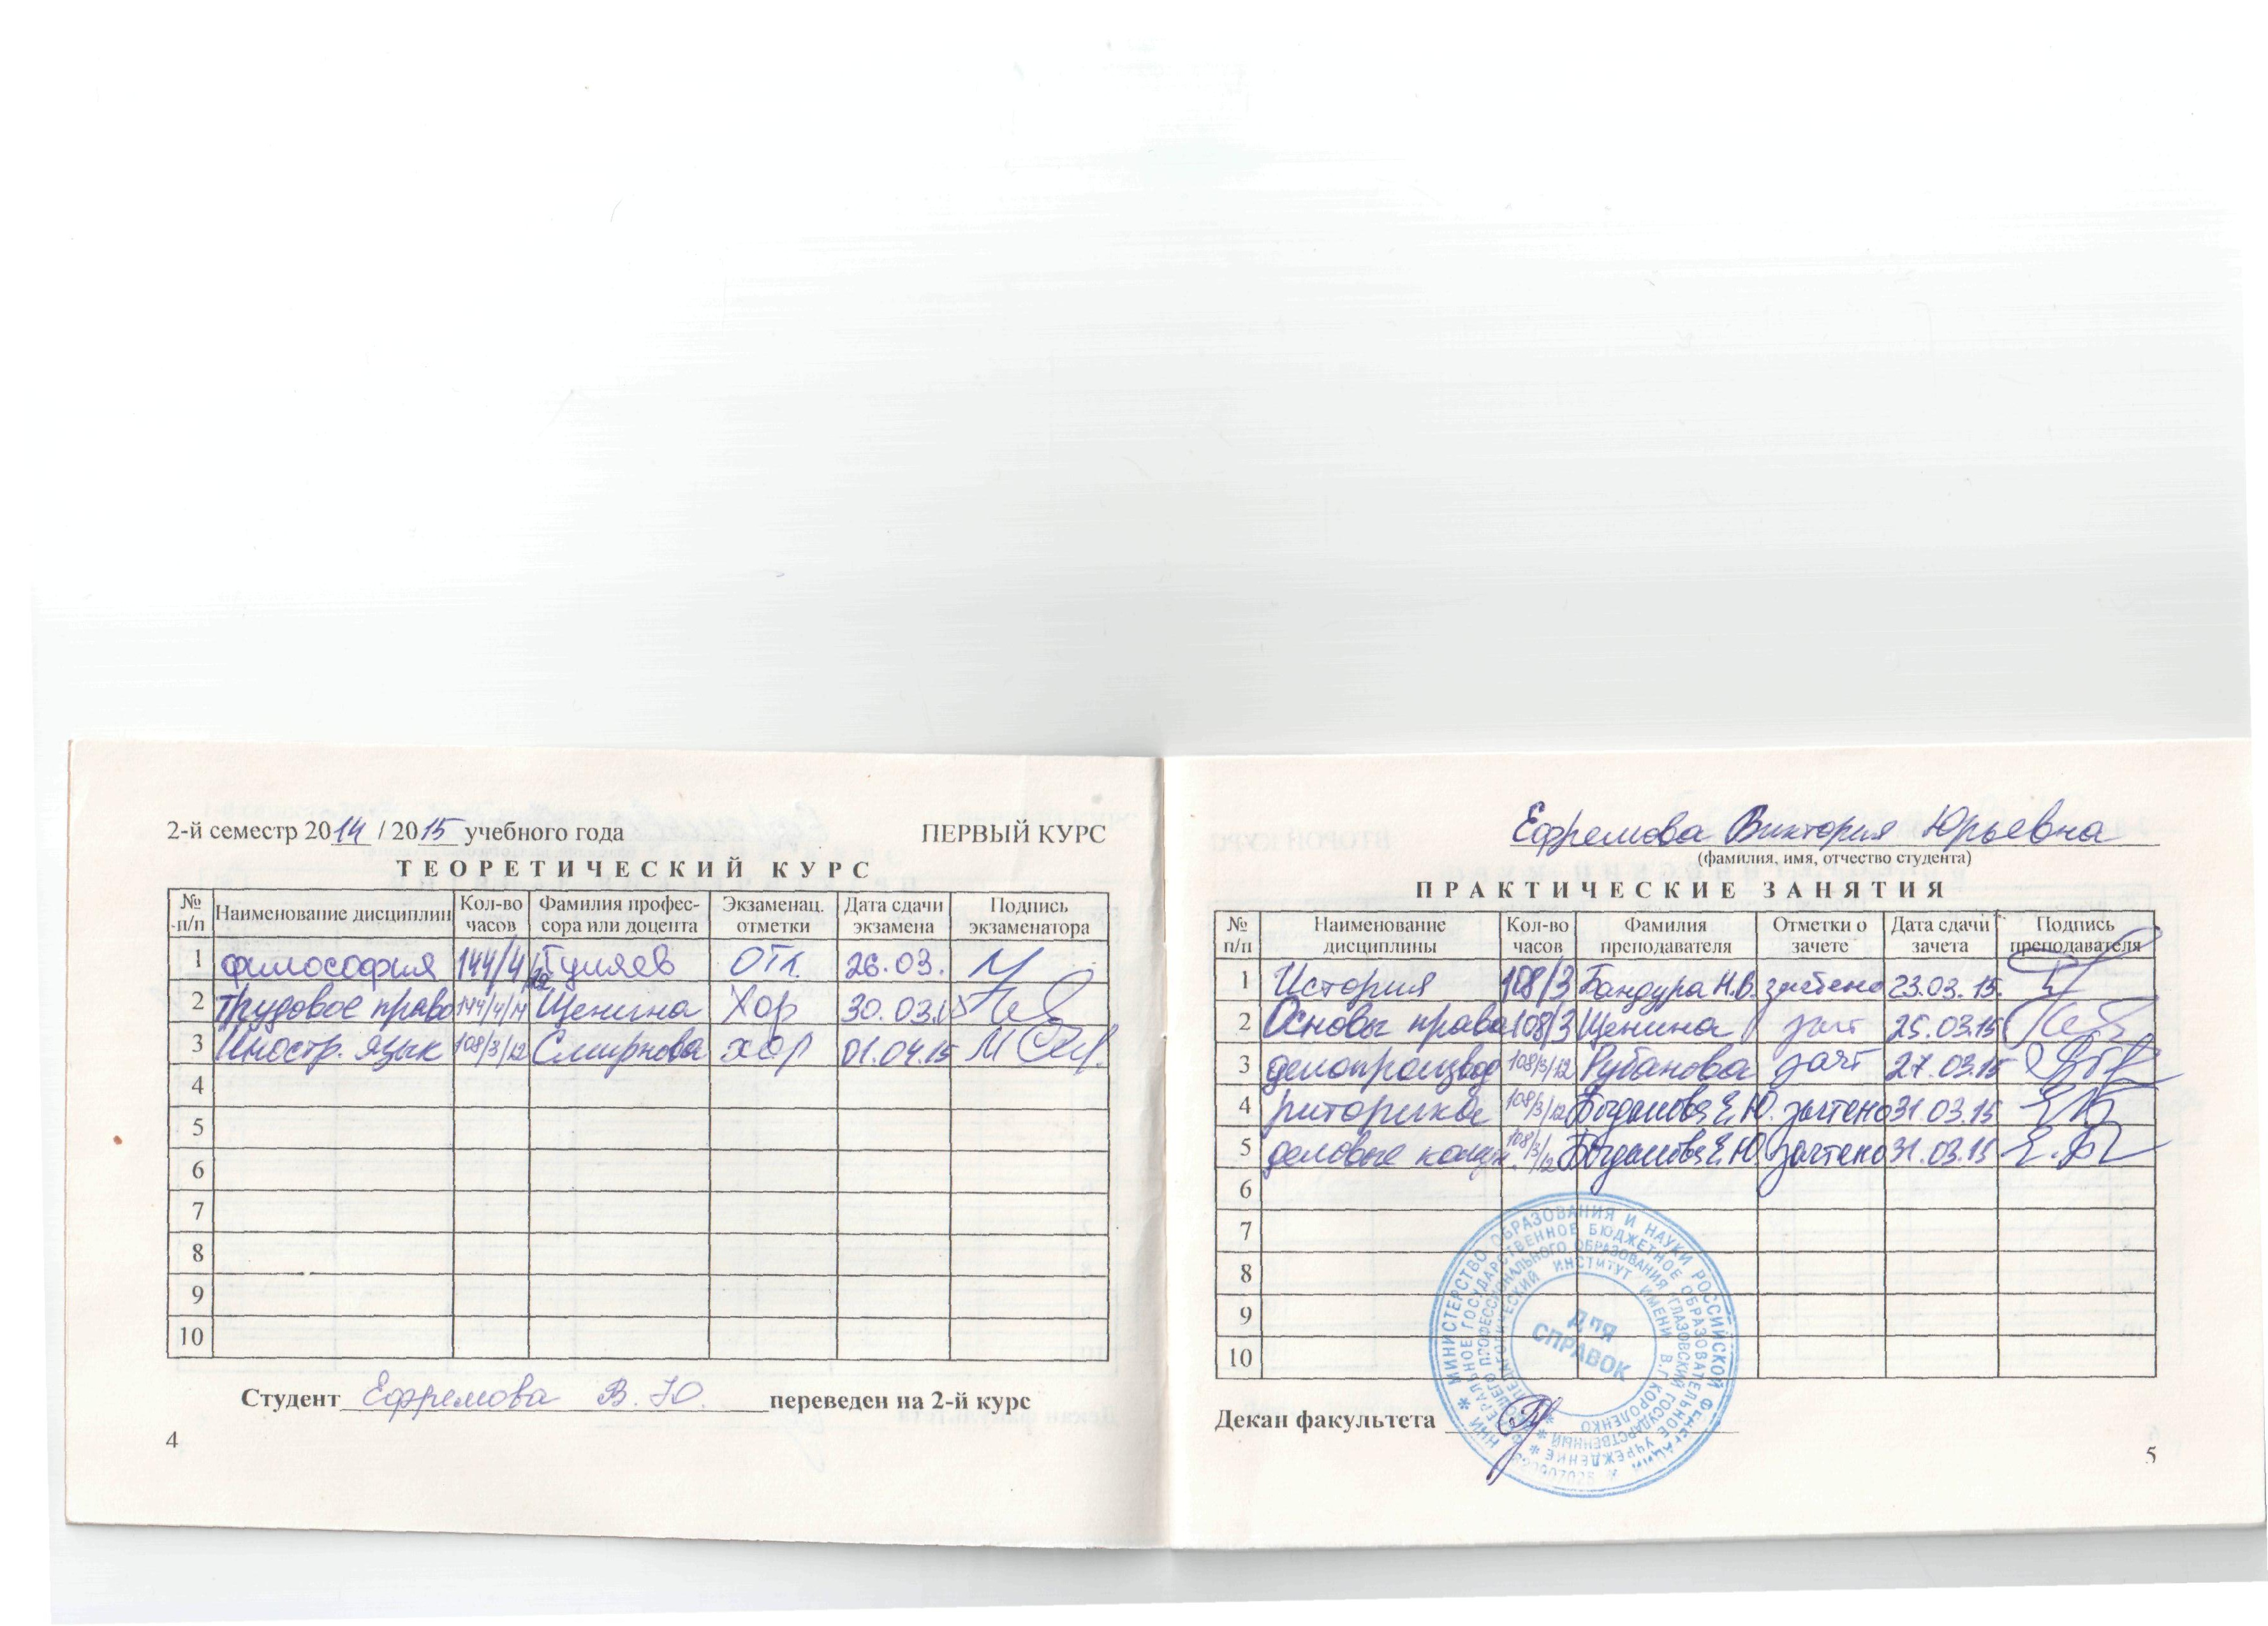 2-й семестр 2014 / 2015 учебного года ПЕРВЫЙ КУРС
ТЕОРЕТИЧЕСКИЙ КУРС
№ п/п Наименование дисциплин Кол-во часов Фамилия профессора или доцента Экзаменац. отметки Дата сдачи экзамена Подпись экзаменатора
1 философия 144/4/12 Гуляев отл. 26.03.
2 Трудовое право 144/4/14 Щенина Хор 30.03.15
3 Иностр. язык 108/3/12 Смирнова хор 01.04.15
4
5
6
7
8
9
10
Студент Ефремова В.Ю. переведен на 2-й курс
4
Ефремова Виктория Юрьевна
(фамилия, имя, отчество студента)
ПРАКТИЧЕСКИЕ ЗАНЯТИЯ
№ п/п Наименование дисциплины Кол-во часов Фамилия преподавателя Отметки о зачете Дата сдачи зачета Подпись преподавателя
1 История 108/3 Бандура Н.В. зачтено 23.03.15.
2 Основы права 108/3 Щенина зачт 25.03.15
3 делопроизвод 108/3/12 Рубанова зачт 27.03.15
4 риторика 108/3/12 Богданова Е.Ю. зачтено 31.03.15
5 деловые коммун. 108/3/12 Богданова Е.Ю зачтено 31.03.15
6
7
8
9
10
МИНИСТЕРСТВО ОБРАЗОВАНИЯ И НАУКИ РОССИЙСКОЙ ФЕДЕРАЦИИ
ФЕДЕРАЛЬНОЕ ГОСУДАРСТВЕННОЕ БЮДЖЕТНОЕ ОБРАЗОВАТЕЛЬНОЕ УЧРЕЖДЕНИЕ
ВЫСШЕГО ПРОФЕССИОНАЛЬНОГО ОБРАЗОВАНИЯ ГЛАЗОВСКИЙ ГОСУДАРСТВЕННЫЙ
ПЕДАГОГИЧЕСКИЙ ИНСТИТУТ ИМЕНИ В.Г. КОРОЛЕНКО
Для
СПРАВОК
Декан факультета
5